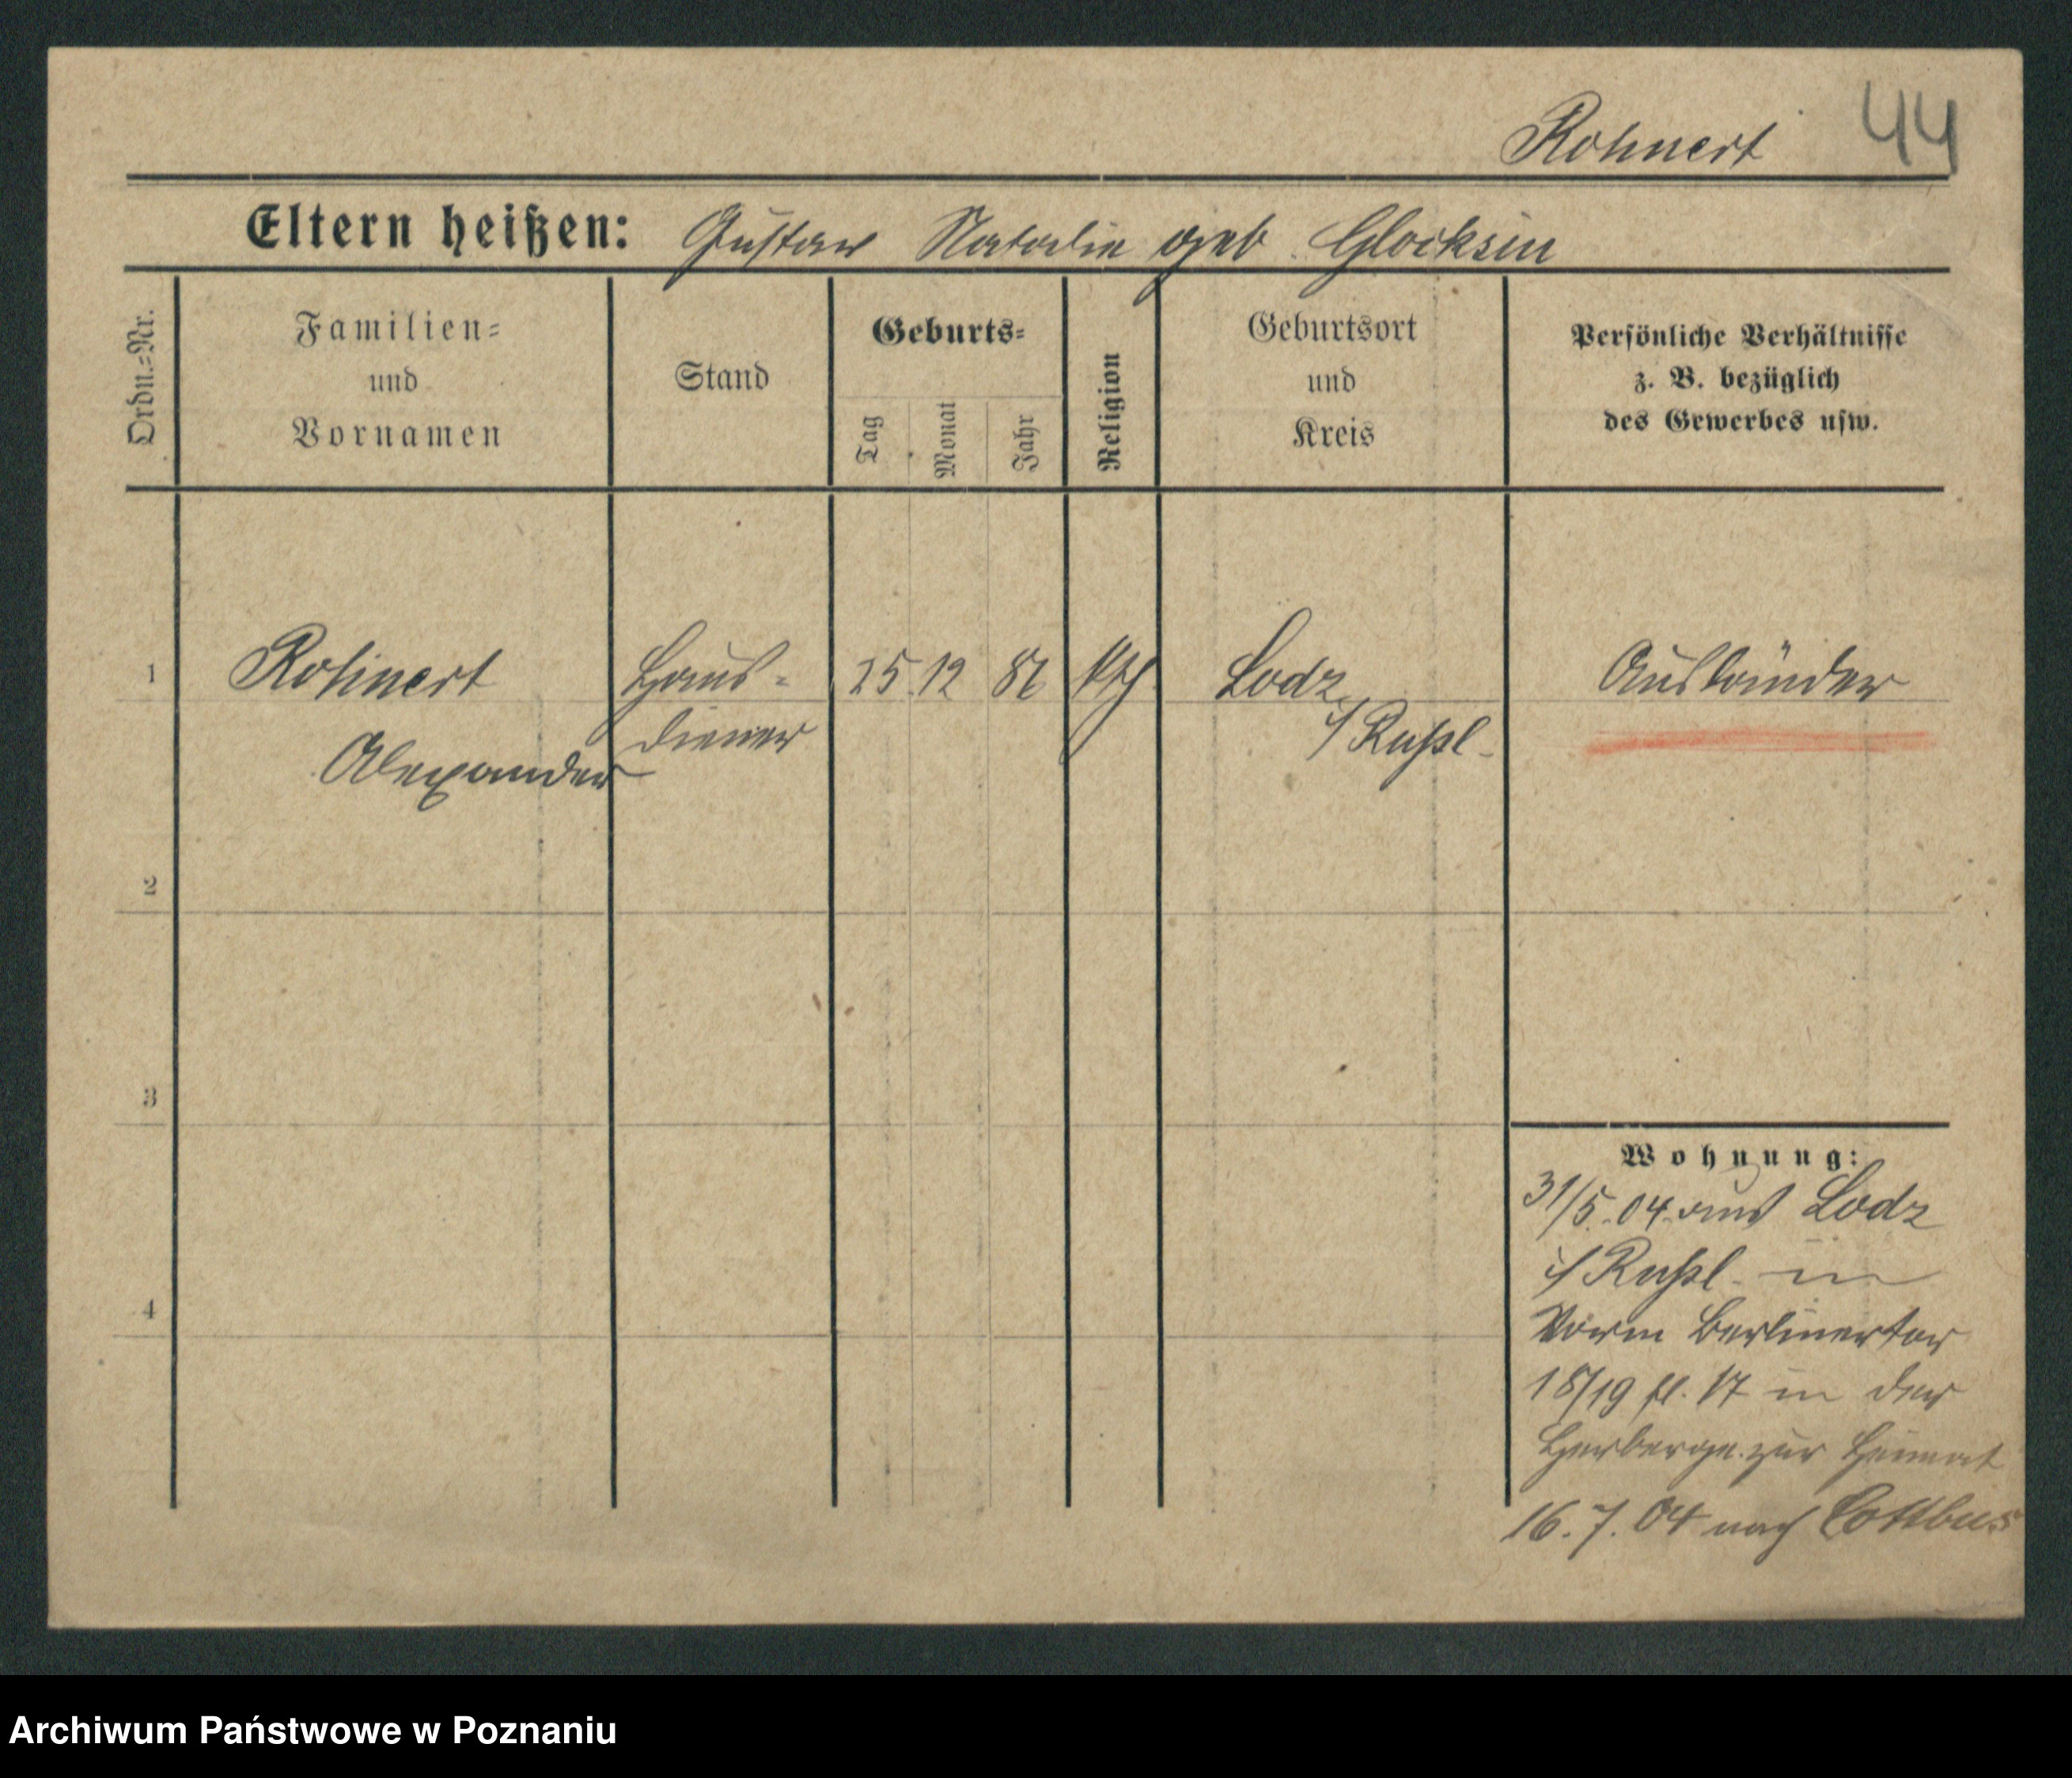 Rohnert 44
Eltern heißen: Gustav Natalie geb. Glocksin
Ordn.=Nr.
Familien=
und
Vornamen
Stand
Geburts=
Tag
Monat
Jahr
Religion
Geburtsort
und
Kreis
Persönliche Verhältnisse
z. B. bezüglich
des Gewerbes usw.
1 Rohnert Haus- 25 12 Kth Lodz Ausländer
Alexander diener i/Rußl.
2
3
4
Wohnung:
31/5.04 aus Lodz
i/Rußl. in
Vorm Berlinertor
18/19 fl. 17 in der
Herberge zur Heimat
16.7.04 nach Cottbus
Archiwum Państwowe w Poznaniu